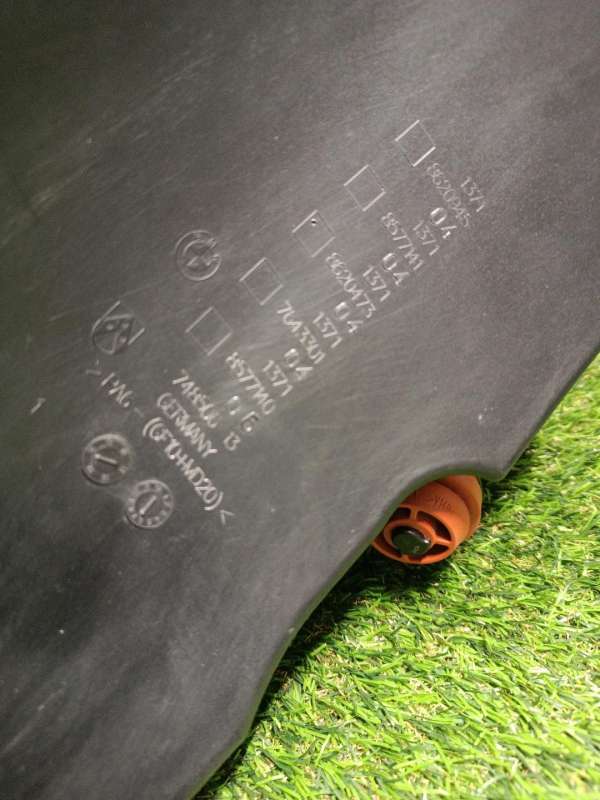 1371
8620945
04
1371
8577141
04
1371
8620473
04
1371
7643301
04
1371
8577140
748506 13
GERMANY
>PA6-(GF10+MD20)<
1